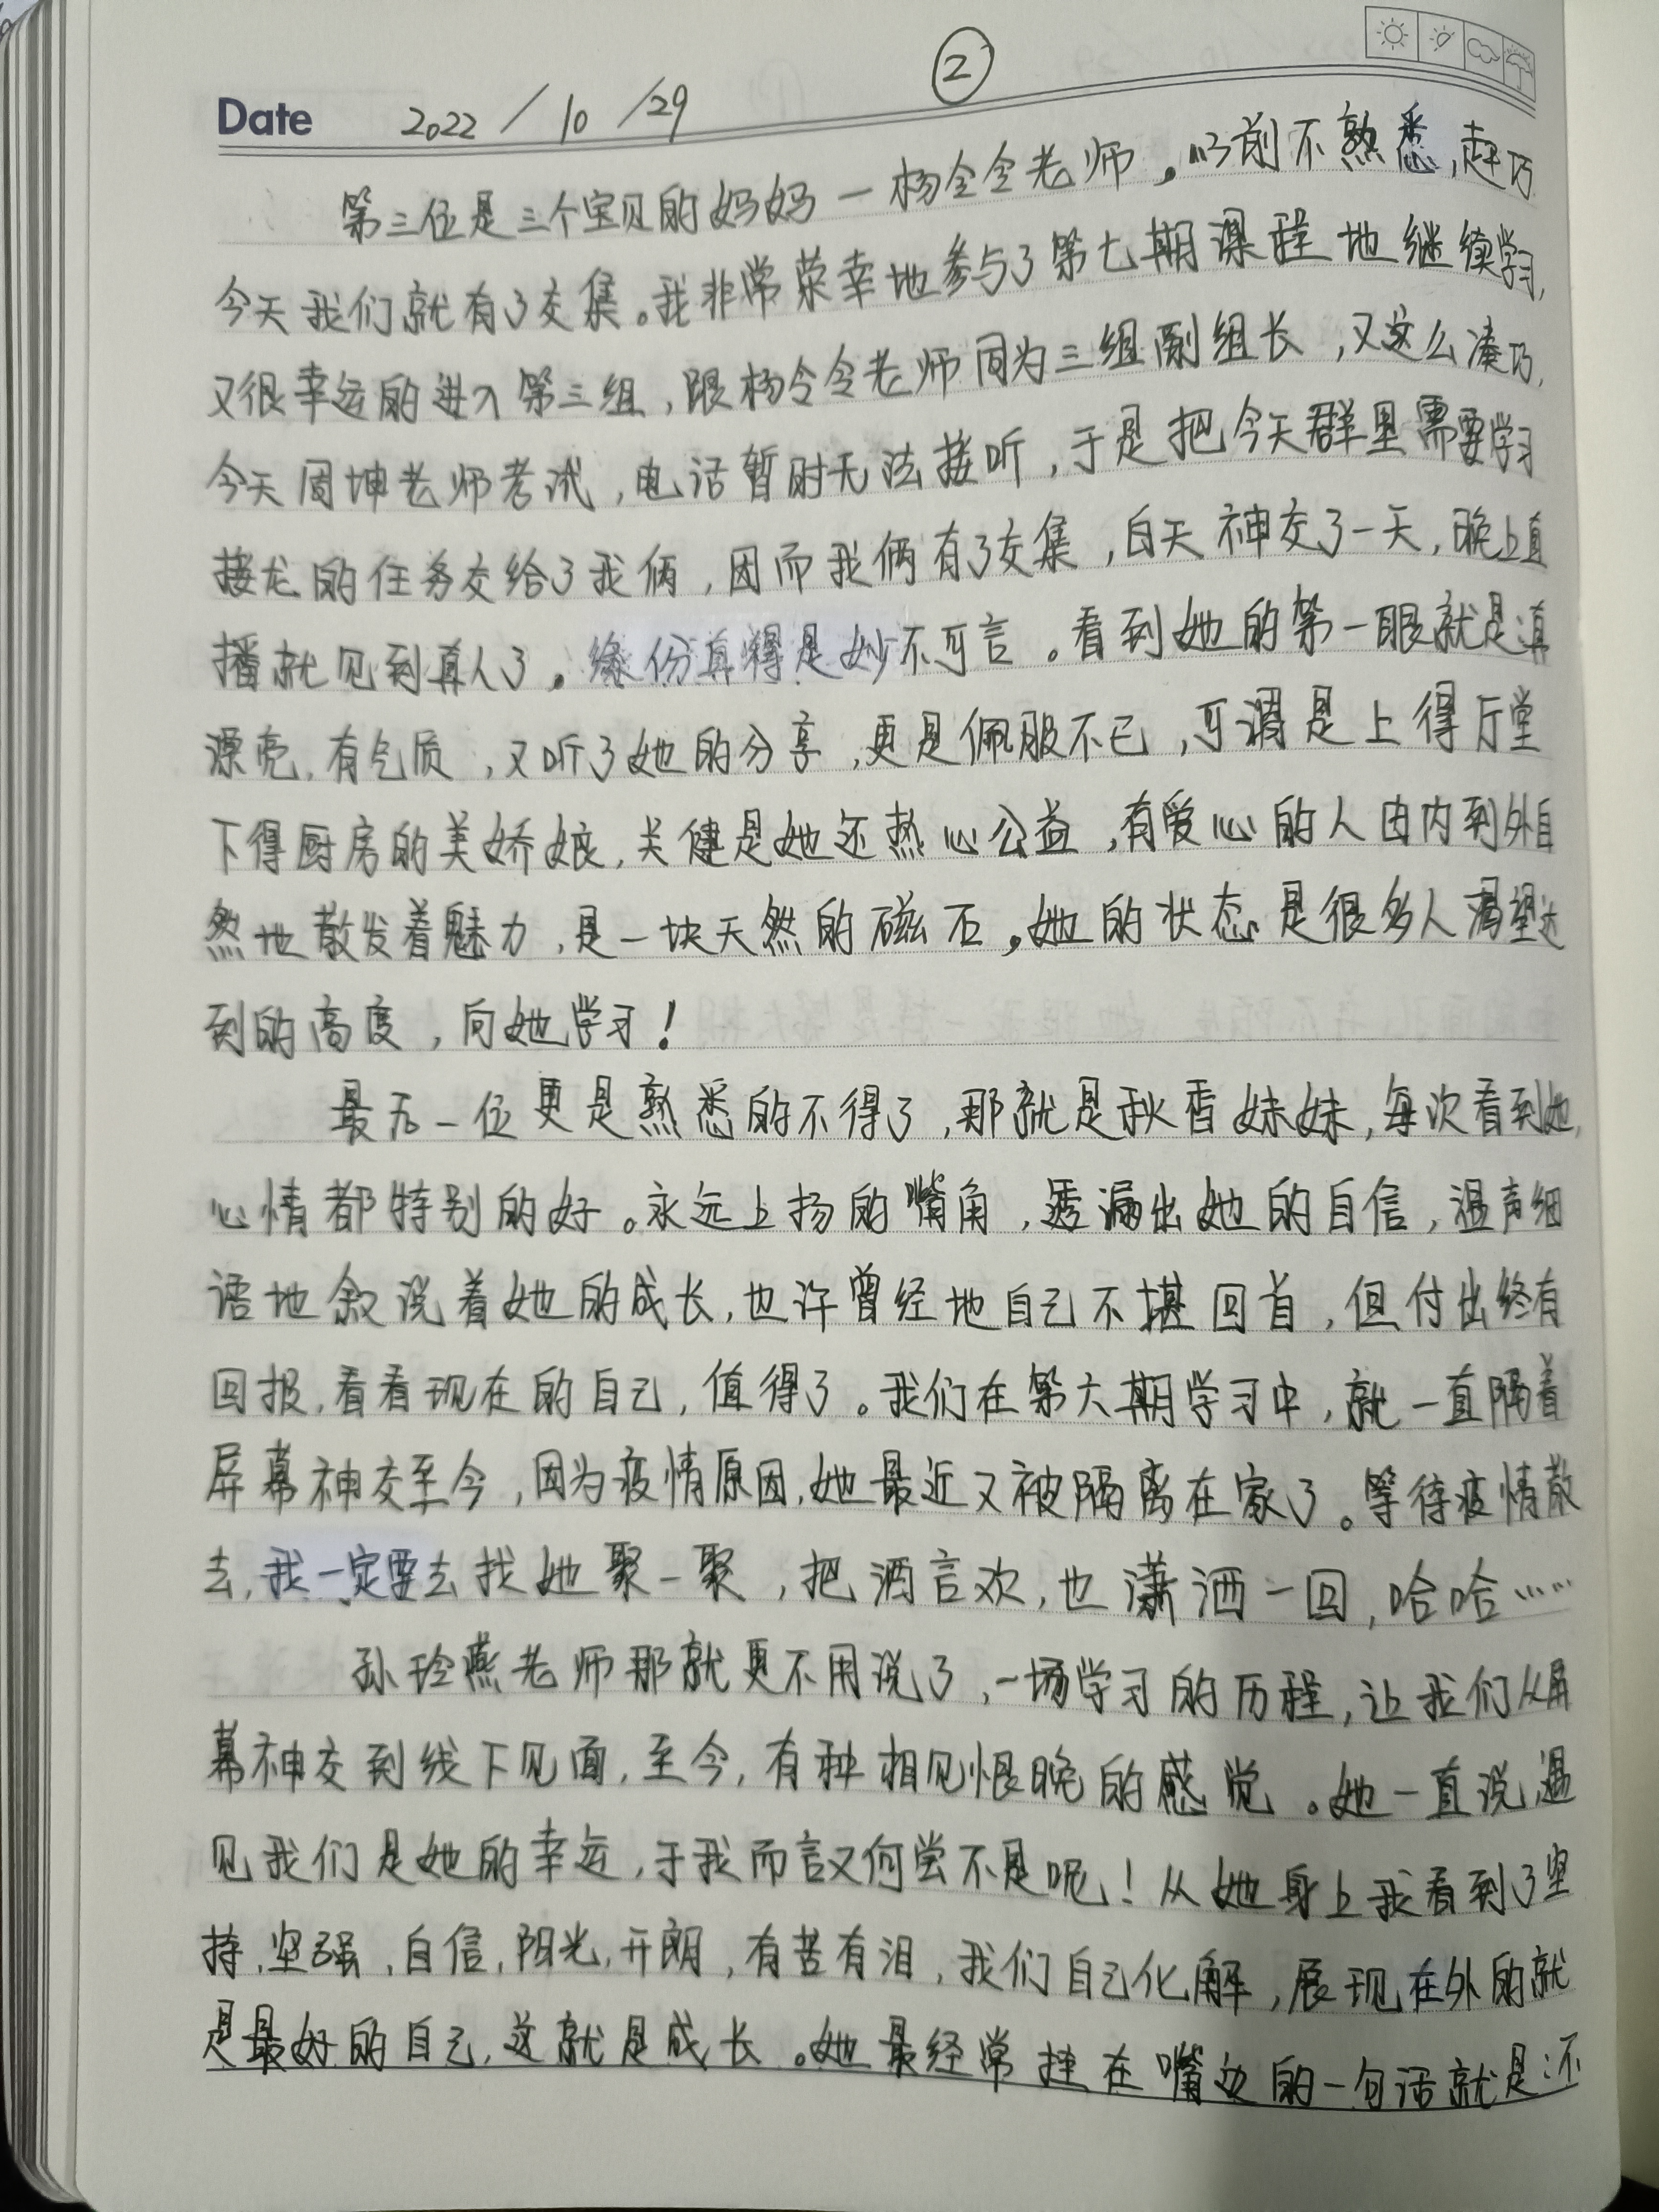 ②
Date 2022/10/29
第三位是三个宝贝的妈妈一杨令令老师。以前不熟悉,赶巧
今天我们就有了交集。我非常荣幸地参与了第七期课程地继续学习,
又很幸运的进入第三组,跟杨令令老师同为三组副组长,又这么凑巧,
今天周坤老师考试,电话暂时无法接听,于是把今天群里需要学习
接龙的任务交给了我俩,因而我俩有了交集,白天神交了一天,晚上直
播就见到真人了。缘份真得是妙不可言。看到她的第一眼就是真
漂亮,有气质,又听了她的分享,更是佩服不已,可谓是上得厅堂
下得厨房的美娇娘,关健是她还热心公益,有爱心的人由内到外自
然地散发着魅力,是一块天然的磁石。她的状态是很多人渴望达
到的高度,向她学习!
最后一位更是熟悉的不得了,那就是秋香妹妹,每次看到她,
心情都特别的好。永远上扬的嘴角,透漏出她的自信,温声细
语地叙说着她的成长,也许曾经地自己不堪回首,但付出终有
回报,看看现在的自己,值得了。我们在第六期学习中,就一直隔着
屏幕神交至今,因为疫情原因,她最近又被隔离在家了。等待疫情散
去,我一定要去找她聚一聚,把酒言欢,也潇洒一回,哈哈……
孙玲燕老师那就更不用说了,一场学习的历程,让我们从屏
幕神交到线下见面,至今,有种相见恨晚的感觉。她一直说,遇
见我们是她的幸运,于我而言又何尝不是呢!从她身上我看到了坚
持,坚强,自信,阳光,开朗,有苦有泪,我们自己化解,展现在外的就
是最好的自己,这就是成长。她最经常挂在嘴边的一句话就是:不